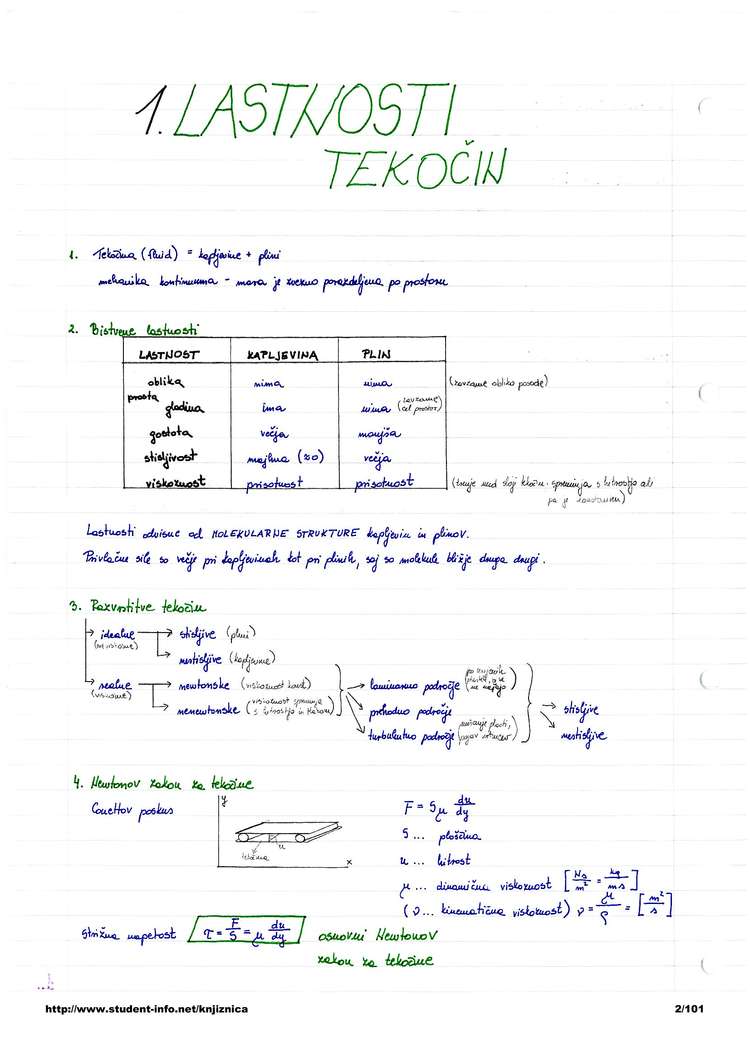 1. LASTNOSTI
TEKOČIN
1. Tekočina (fluid) = kapljevine + plini
mehanika kontinuuma - masa je zvezno porazdeljena po prostoru
2. Bistvene lastnosti
LASTNOST KAPLJEVINA PLIN
oblika nima nima (zavzame obliko posode)
prosta gladina ima nima (zavzame cel prostor)
gostota večja manjša
stisljivost majhna (≈0) večja
viskoznost prisotnost prisotnost (trenje med sloji tekočin: spreminja s hitrostjo ali
pa je konstanten)
Lastnosti odvisne od MOLEKULARNE STRUKTURE kapljevin in plinov.
Privlačne sile so večje pri kapljevinah kot pri plinih, saj so molekule bližje druga drugi.
3. Razvrstitve tekočin
→ idealne → stisljive (plini)
(neviskozne) → nestisljive (kapljevine)
→ realne → newtonske (viskoznost konst) → laminarno področje
(viskozne) → nenewtonske (viskoznost spreminja s hitrostjo in) → prehodno področje → stisljive
→ turbulentno področje (mešanje plasti, pojav vrtincev) → nestisljive
4. Newtonov zakon za tekočine
Couettov poskus
y
u
tekočina
x
F = S μ du/dy
S ... ploščina
u ... hitrost
μ ... dinamična viskoznost [Ns/m² = kg/ms]
(ν ... kinematična viskoznost) ν = μ/ρ = [m²/s]
Strižna napetost τ = F/S = μ du/dy osnovni Newtonov
zakon za tekočine
http://www.student-info.net/knjiznica 2/101